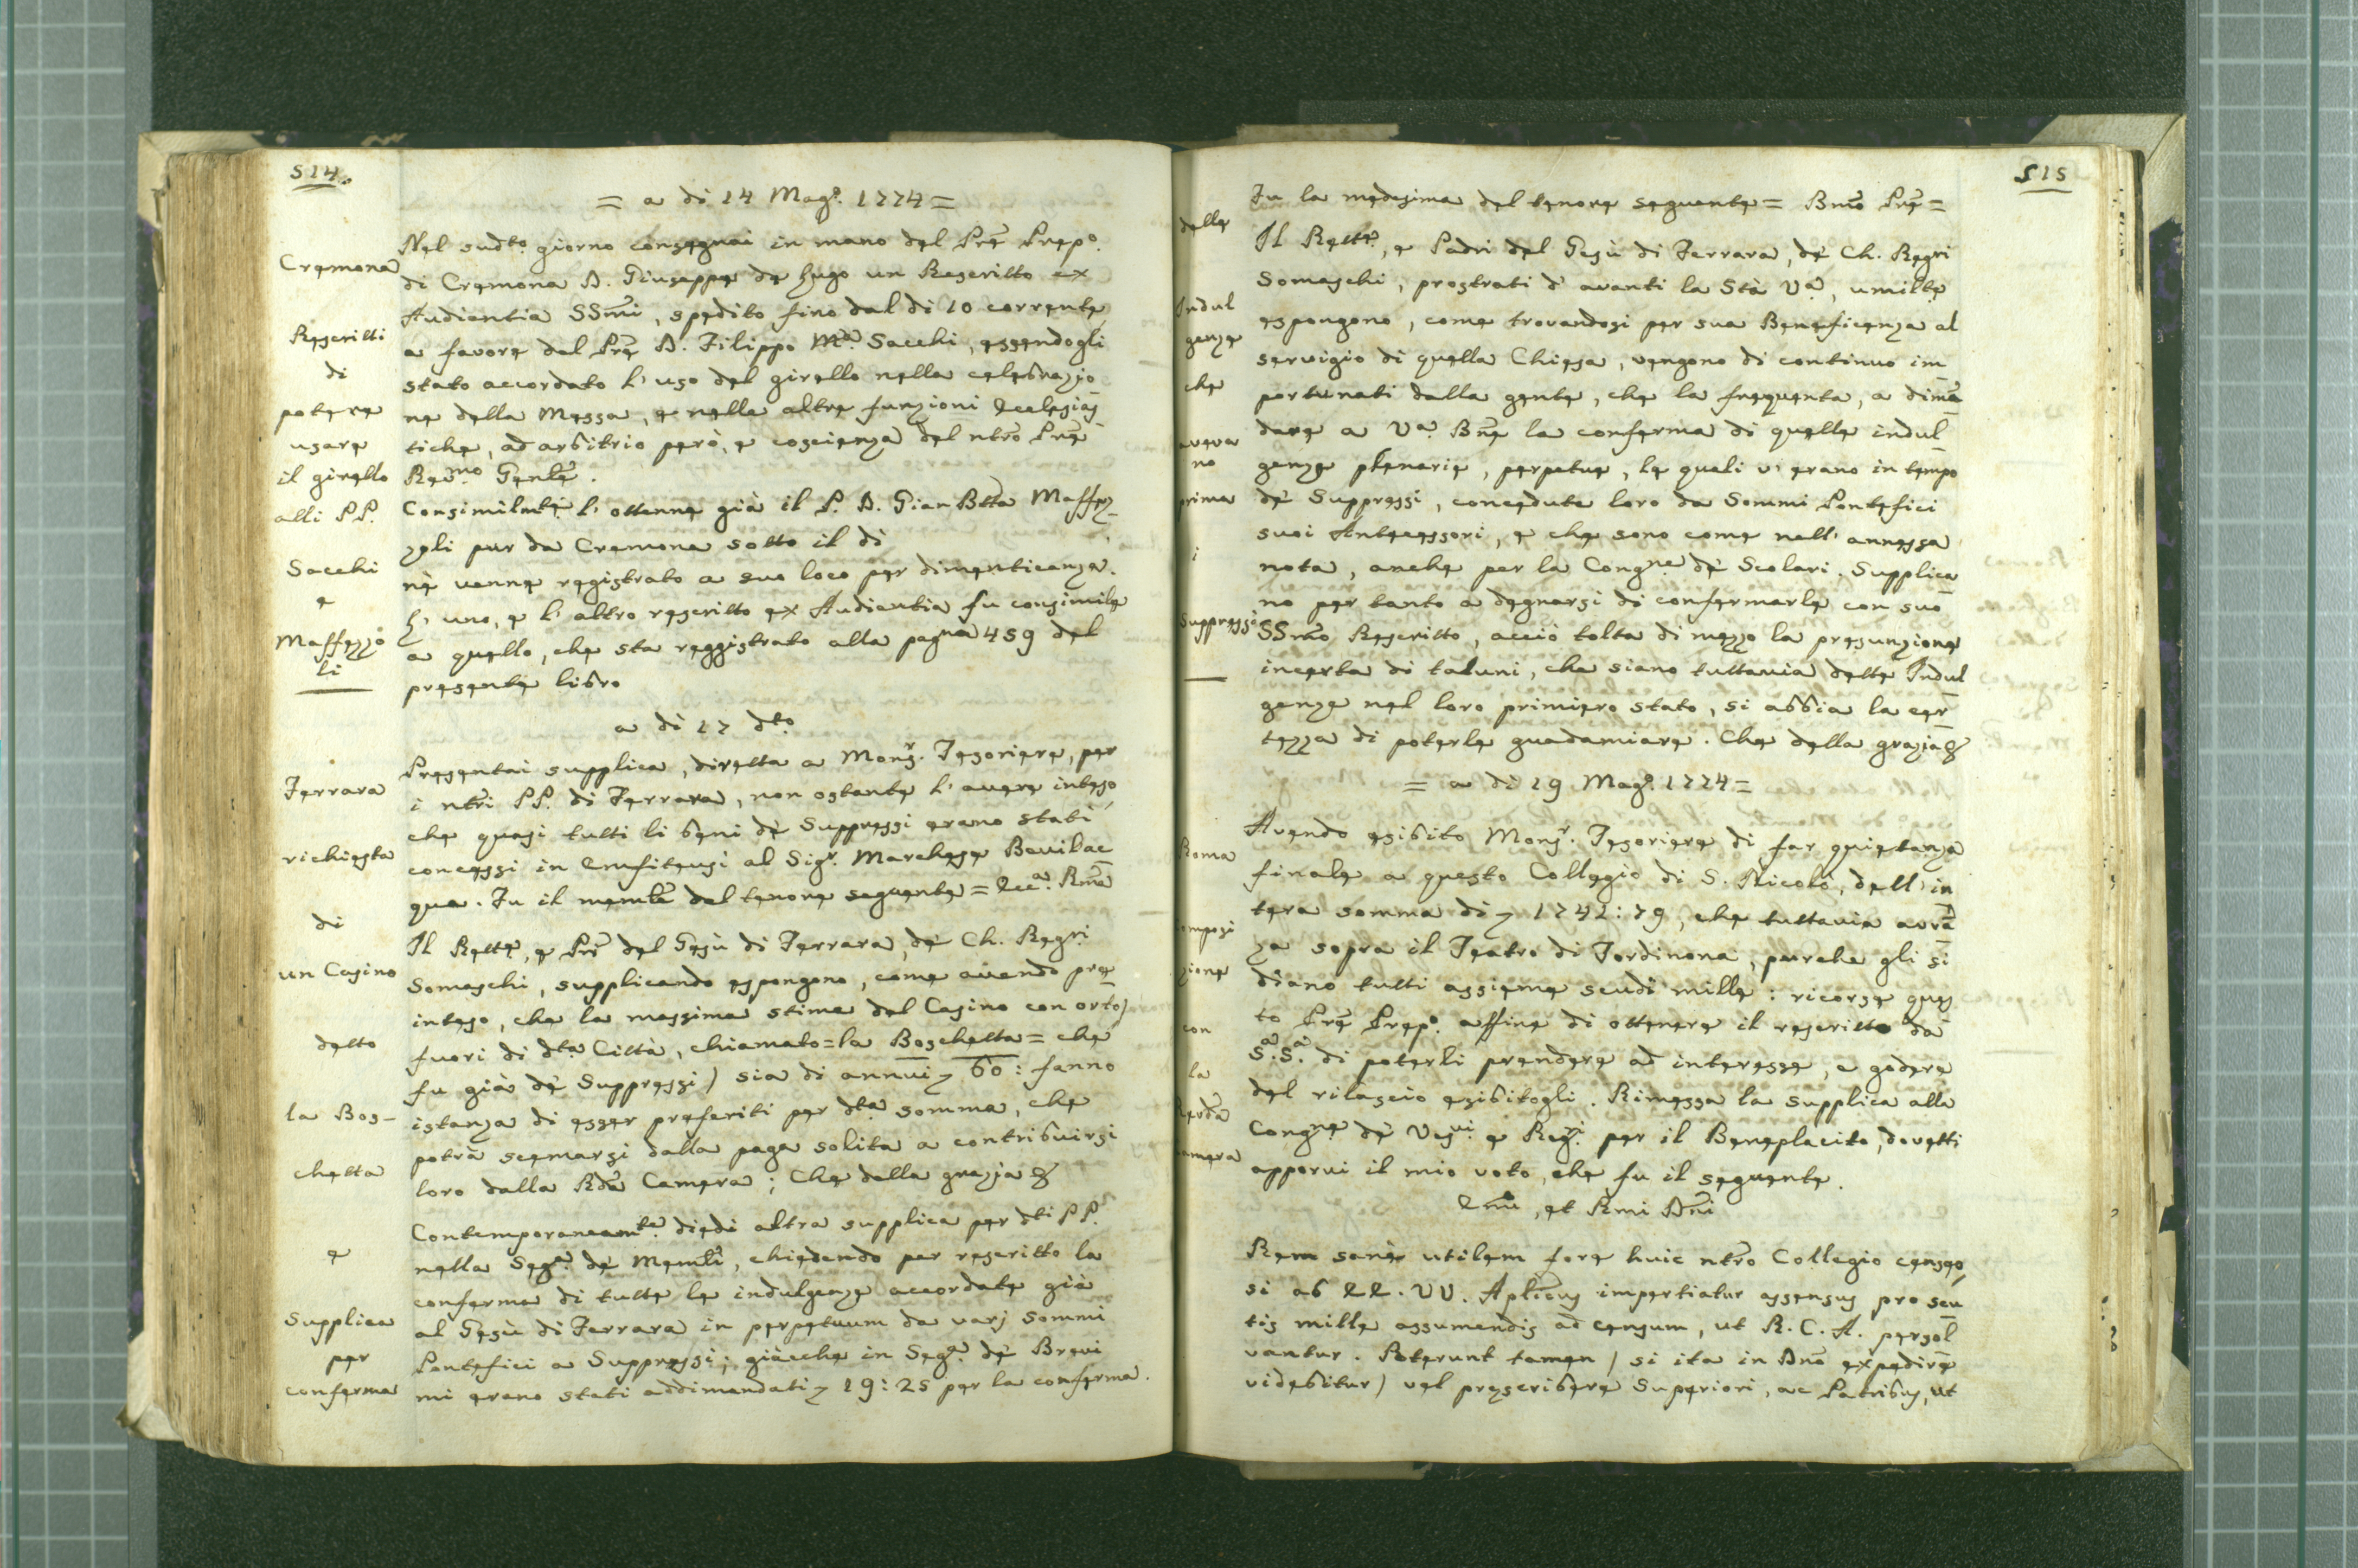 514.
= a di 14 Magº. 1774 =
Cremona
Rescritti
di
potere
usare
il girello
alli PP.
Sacchi
e
Maffezzo
li
Nel sudto. giorno consegnai in mano del Prē Prepº.
di Cremona D. Giuseppe de Lugo un Rescritto ex
Audientia SSm̄i, spedito fino dal di 10 corrente
a favore del Prē D. Filippo Mª. Sacchi, essendogli
stato accordato l' uso del girello nella celebrazio
ne della Messa, e nelle altre funzioni Ecclesias
tiche, ad arbitrio però, e coscienza del ntrō Prē
Revmo. Genlē.
Consimilmtē l' ottenne già il P. D. Gian Btta Maffez-
zoli pur da Cremona sotto il di
nè venne registrato a suo loco per dimenticanza.
L' uno, e l' altro rescritto ex Audientia fu consimile
a quello, che sta reggistrato alla pagna 459 del
presente libro
a di 17 dto.
Ferrara
richiesta
di
un Casino
detto
la Bos-
chetta
e
Supplica
per
conferma
Presentai supplica, diretta a Monsr. Tesoriere, per
i ntrī PP. di Ferrara, non ostante l' avere inteso,
che quasi tutti li beni de' Suppressi erano stati
concessi in Emfiteusi al Sigr. Marchese Bevilac
qua. Fu il memlē del tenore seguente = Eccª. Rmā
Il Rettē, e Prī del Gesù di Ferrara, de' Ch. Regri
Somaschi, supplicando espongono, come avendo pre
inteso, che la massima stima del Casino con orto)
fuori di dtā Città, chiamato = la Boschetta = che
fu già de' Suppressi) sia di annui 60: fanno
istanza di esser preferiti per dtā somma, che
potrà scemarsi dalla paga solita a contribuirsi
loro dalla Rdā Camera; Che della grazia &
Contemporaneamte. diedi altra supplica per dti PP.
nella Segª. de' Memlī, chiedendo per rescritto la
conferma di tutte le indulgenze accordate già
al Gesù di Ferrara in perpetuum da varj Sommi
Pontefici a Suppressi; giacche in Segª. de' Brevi
mi erano stati addimandati 19:25 per la conferma.
515
delle
Indul
genze
che
aveva
no
prima
i
Suppressi
Fu la medesima del tenore seguente = Bmō Prē =
Il Rettē, e Padri del Gesù di Ferrara, de' Ch. Regri
Somaschi, prostrati d' avanti la Stà Vª, umiltē
espongono, come trovandosi per sua Beneficenza al
servigio di quella Chiesa, vengono di continuo im
portunati dalla gente, che la frequenta, a dimā
dare a Vª. Bnē la conferma di quelle indul
genze plenarie, perpetue, le quali v' erano in tempo
de' Suppressi, concedute loro da Sommi Pontefici
suoi Antecessori, e che sono come nell' annessa
nota, anche per la Congne de' Scolari. Supplica
no per tanto a degnarsi di confermarle con suo
SSmō Rescritto, acciò tolta di mezzo la presunzione
incerta di taluni, che siano tuttavia dette Indul
genze nel loro primiero stato, si abbia la cer
tezza di poterle guadamiare. Che della grazia &
= a di 19 Magº. 1774 =
Roma
omposi
zione
con
la
Revdā
amera
Avendo esibito Monsr. Tesoriere di far quietanza
finale a questo Collegio di S. Nicolò, dell' in
tera somma di 1742:79, che tuttavia avrā
za sopra il Teatro di Tordinona, purche gli si
diano tutti assieme scudi mille: ricorse ques
to Prē Prepº. affine di ottenere il rescritto da
Sª. Sª. di poterli prendere ad interesse, e godere
del rilascio esibitogli. Rimessa la supplica alla
Congne de' Vesvi e Regri. per il Beneplacito, dovetti
apporvi il mio voto, che fu il seguente.
Em̄i, et Rmi Dn̄i
Rem sanè utilem fore huic ntrō Collegio censeo,
si ab EE. VV. Aplicūs impertiatur assensus pro scu
tis mille assumendis ad censum, ut R. C. A. persol
vantur. Poterunt tamen (si ita in Dnō expedire
videbitur) vel prescribere Superiori, ac Patribus, ut